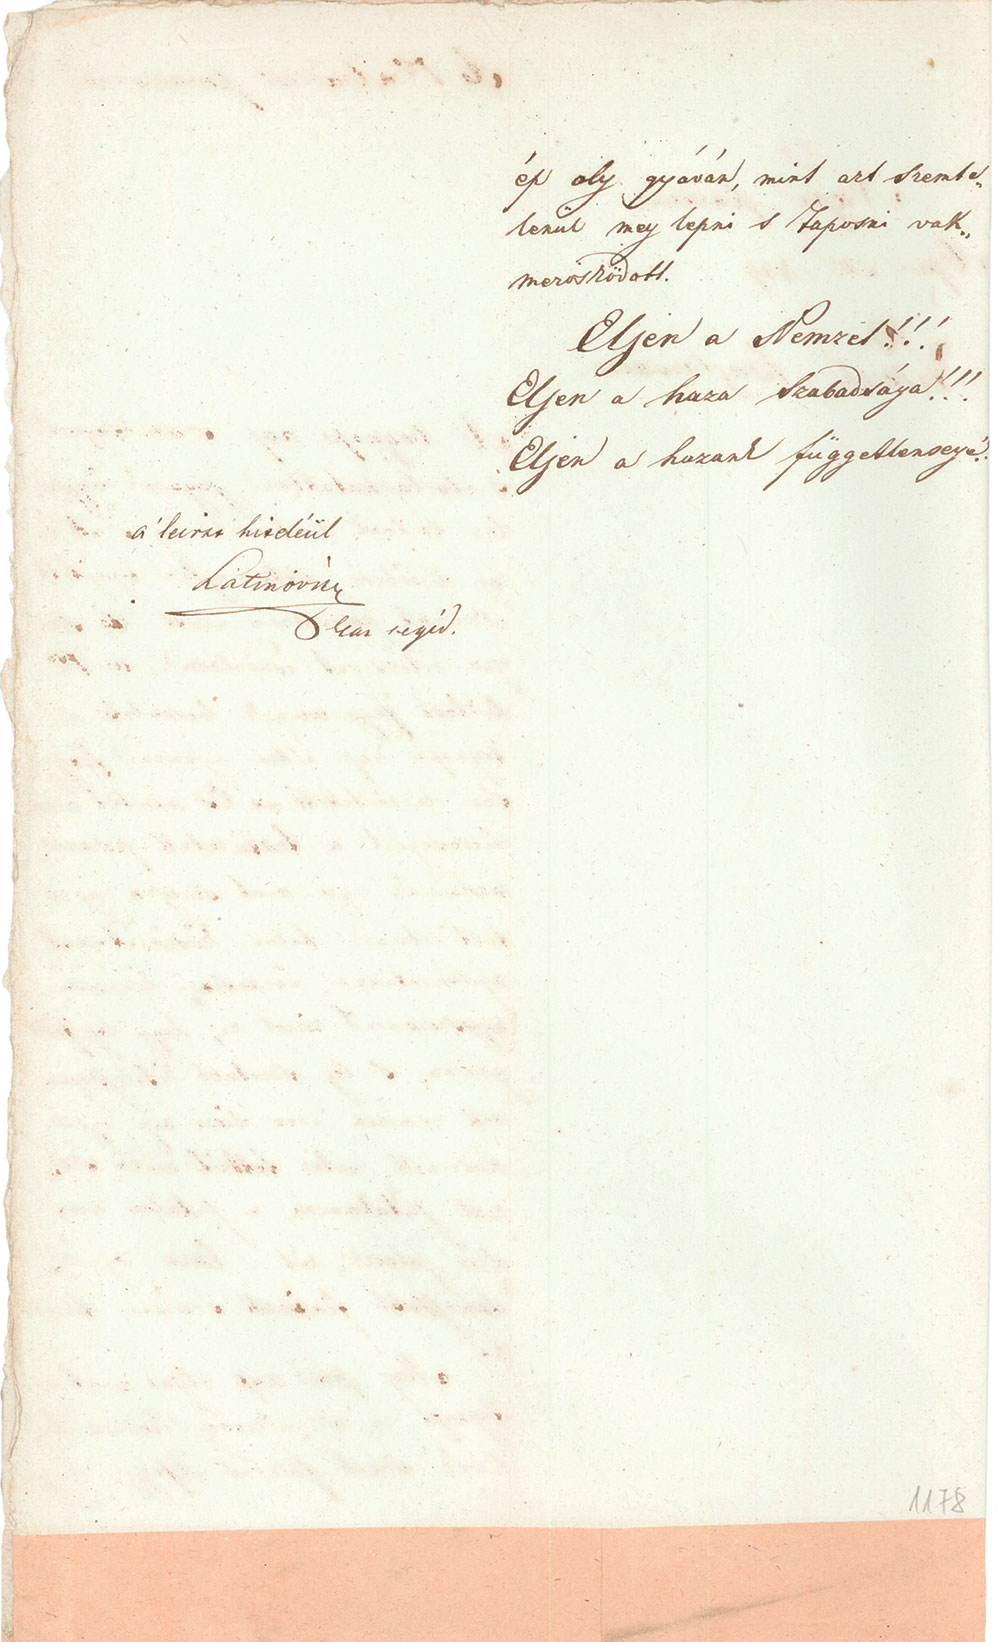 ép oly gyáván, mint azt szemte„
lenül meg lepni s taposni vak„
merösködött.
Eljen a Nemzet!!!
Eljen a haza szabadsága!!!
Eljen a hazank függetlensege!
a' leirás hiteléül
Latinovits
segéd.
1178